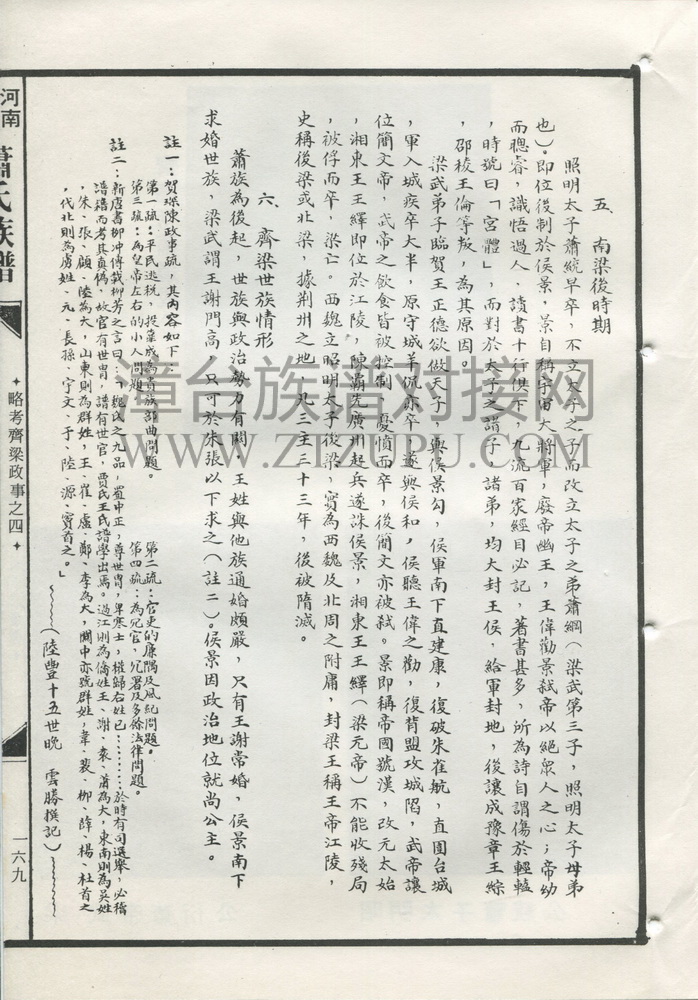 五、南梁後時期
照明太子蕭統早卒，不立太子之子而改立太子之弟蕭綱（梁武第三子，照明太子母弟
也）。即位後制於侯景，景自稱宇宙大將軍，廢帝幽王，王偉勸景弒帝以絕眾人之心；帝幼
而聰睿，識悟過人，讀書十行俱下，九流百家經目必記，著書甚多，所為詩自謂傷於輕轤
，時號曰「宮體」，而對於太子之諸子、諸弟，均大封王侯，給軍封地，後讓成豫章王綜
，邵稜王倫等叛，為其原因。
梁武弟子臨賀王正德欲做天子，與侯景勾，侯軍南下直建康，復破朱雀航，直圍台城
，軍入城疾卒大半，原守城羊侃亦卒，遂與侯和，侯聽王偉之勸，復背盟攻城陷，武帝讓
位簡文帝，武帝之飲食皆被控制，憂憤而卒，後簡文亦被弒。景即稱帝國號漢，改元太始
，湘東王王繹即位於江陵，陳霸先廣州起兵遂誅侯景，湘東王王繹（梁元帝）不能收殘局
，被俘而卒，梁亡。西魏立昭明太子後梁，實為西魏及北周之附庸，封梁王稱王帝江陵，
史稱後梁或北梁，據荆州之地，凡三主三十三年，後被隋滅。
六、齊梁世族情形
蕭族為後起，世族與政治勢力有關，王姓與他族通婚頗嚴，只有王謝常婚，侯景南下
求婚世族，梁武謂王謝門高，只可於朱張以下求之（註二）。侯景因政治地位就尚公主。
註一：賀琛陳政事疏，其內容如下：
第一疏：平民逃稅，投靠成為貴族部曲問題。 第二疏：官吏的廉隅及風紀問題。
第三疏：為皇帝左右的小人問題。 第四疏：為冗官，冗署及多餘法律問題。
註二：新唐書柳冲傳載柳芳之言曰：「魏氏之九品，置中正，尊世胄，卑寒士，權歸右姓已………於時有司選舉，必稽
譜籍而考其真偽，故官有世胄，譜有世官，賈氏王氏譜學出焉。過江則為僑姓王、謝、袁、蕭為大，東南則為吳姓
，朱、張、顧、陸為大，山東則為群姓，王、崔、盧、鄭、李為大，關中亦號群姓，韋、裴、柳、薛、楊、杜首之
，代北則為虜姓、元、長孫、宇文、于、陸、源、竇首之。」
（陸豐十五世晚 雲勝撰記）
河南蕭氏族譜
略考齊梁政事之四
一六九
壇台族谱对接网
WWW.ZTZUPU.COM